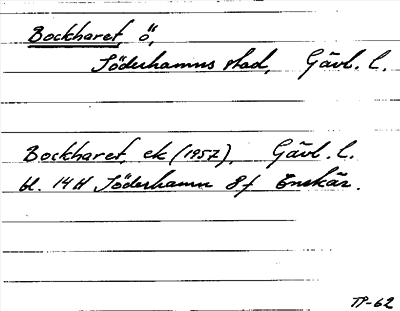 Bockharet, ö,
Söderhamns stad, Gävl. l.
Bockharet, ek (1957), Gävl. l.
bl. 14H Söderhamn 8f Enskär.
TP-62